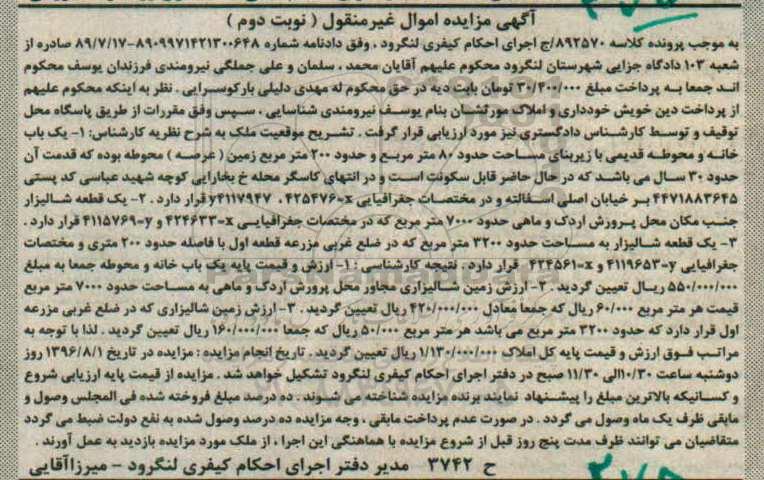 آگهی مزایده اموال غیرمنقول ( نوبت دوم )
به موجب پرونده کلاسه ۸۹۲۵۷۰/ج اجرای احکام کیفری لنگرود ، وفق دادنامه شماره ۸۹۰۹۹۷۱۴۲۱۳۰۰۶۴۸-۸۹/۷/۱۷ صادره از
شعبه ۱۰۳ دادگاه جزایی شهرستان لنگرود محکوم علیهم آقایان محمد ، سلمان و علی جملگی نیرومندی فرزندان یوسف محکوم
اند جمعا به پرداخت مبلغ ۳۰/۴۰۰/۰۰۰ تومان بابت دیه در حق محکوم له مهدی دلیلی بارکوسرایی . نظر به اینکه محکوم علیهم
از پرداخت دین خویش خودداری و املاک مورثشان بنام یوسف نیرومندی شناسایی ، سپس وفق مقررات از طریق پاسگاه محل
توقیف و توسط کارشناس دادگستری نیز مورد ارزیابی قرار گرفت . تشریح موقعیت ملک به شرح نظریه کارشناس: ۱- یک باب
خانه و محوطه قدیمی با زیربنای مساحت حدود ۸۰ متر مربع و حدود ۲۰۰ متر مربع زمین ( عرصه ) محوطه بوده که قدمت آن
حدود ۳۰ سال می باشد که در حال حاضر قابل سکونت است و در انتهای کاسگر محله خ بخارایی کوچه شهید عباسی کد پستی
۴۴۷۱۸۸۳۶۴۵ بر خیابان اصلی اسفالته و در مختصات جغرافیایی x=۴۲۵۴۷۶ ، y۴۱۱۷۹۴۷ قرار دارد . ۲- یک قطعه شالیزار
جنب مکان محل پرورش اردک و ماهی حدود ۷۰۰۰ متر مربع که در مختصات جغرافیایی x=۴۲۴۶۳۳ و y=۴۱۱۵۷۶۹ قرار دارد .
۳- یک قطعه شالیزار به مساحت حدود ۳۲۰۰ متر مربع که در ضلع غربی مزرعه قطعه اول با فاصله حدود ۲۰۰ متری و مختصات
جغرافیایی y=۴۱۱۹۶۵۳ و x=۴۲۴۵۶۱ قرار دارد . نتیجه کارشناسی : ۱- ارزش و قیمت پایه یک باب خانه و محوطه جمعا به مبلغ
۵۵۰/۰۰۰/۰۰۰ ریال تعیین گردید . ۲- ارزش زمین شالیزاری مجاور محل پرورش اردک و ماهی به مساحت حدود ۷۰۰۰ متر مربع
قیمت هر متر مربع ۶۰/۰۰۰ ریال که جمعا معادل ۴۲۰/۰۰۰/۰۰۰ ریال تعیین گردید . ۳- ارزش زمین شالیزاری که در ضلع غربی مزرعه
اول قرار دارد که حدود ۳۲۰۰ متر مربع می باشد هر متر مربع ۵۰/۰۰۰ ریال که جمعا ۱۶۰/۰۰۰/۰۰۰ ریال تعیین گردید . لذا با توجه به
مراتب فوق ارزش و قیمت پایه کل املاک ۱/۱۳۰/۰۰۰/۰۰۰ ریال تعیین گردید . تاریخ انجام مزایده : مزایده در تاریخ ۱۳۹۶/۸/۱ روز
دوشنبه ساعت ۱۰/۳۰الی ۱۱/۳۰ صبح در دفتر اجرای احکام کیفری لنگرود تشکیل خواهد شد . مزایده از قیمت پایه ارزیابی شروع
و کسانیکه بالاترین مبلغ را پیشنهاد نمایند برنده مزایده شناخته می شوند . ده درصد مبلغ فروخته شده فی المجلس وصول و
مابقی ظرف یک ماه وصول می گردد . در صورت عدم پرداخت مابقی ، وجه مزایده ده درصد وصول شده به نفع دولت ضبط می گردد
متقاضیان می توانند ظرف مدت پنج روز قبل از شروع مزایده با هماهنگی این اجرا ، از ملک مورد مزایده بازدید به عمل آورند .
ح ۳۷۴۲ مدیر دفتر اجرای احکام کیفری لنگرود - میرزاآقایی